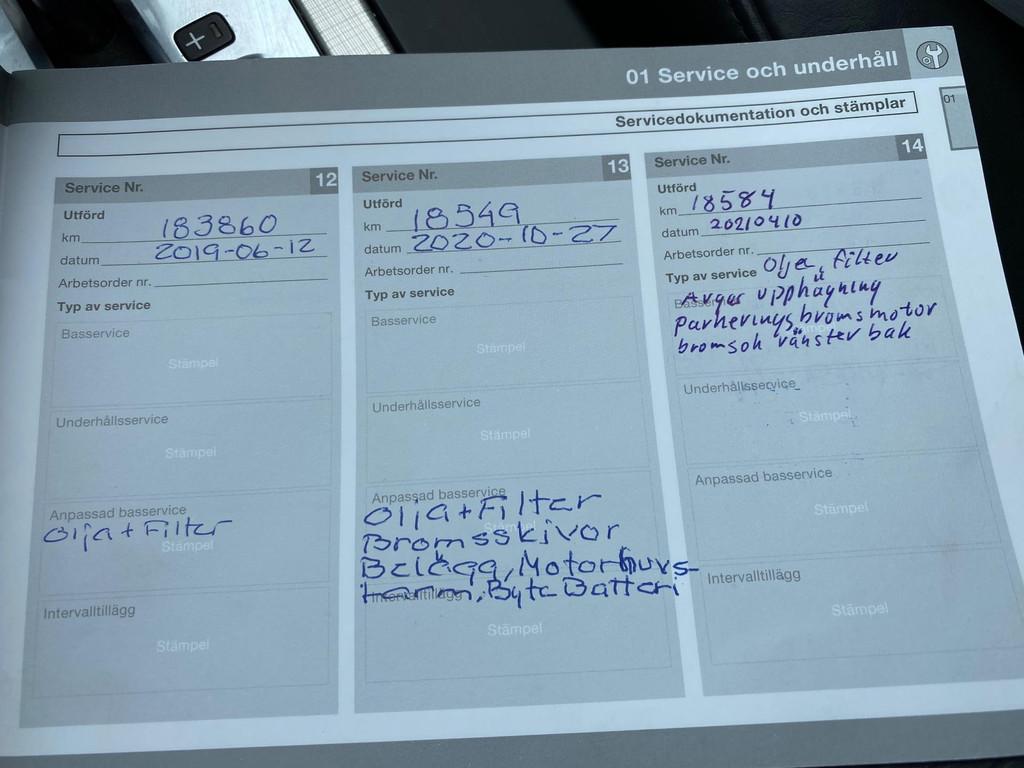 01 Service och underhåll
01
Servicedokumentation och stämplar
Service Nr. 12
Utförd
km 183860
datum 2019-06-12
Arbetsorder nr.
Typ av service
Basservice
Stämpel
Underhållsservice
Stämpel
Anpassad basservice
Olja + Filter
Stämpel
Intervalltillägg
Stämpel
Service Nr. 13
Utförd
km 18549
datum 2020-10-27
Arbetsorder nr.
Typ av service
Basservice
Stämpel
Underhållsservice
Stämpel
Anpassad basservice
Olja + Filter
Bromsskivor
Belägg, Motorhuvs-
Intervalltillägg
larm, Byta Batteri
Stämpel
Service Nr. 14
Utförd
km 18584
datum 20210410
Arbetsorder nr.
Typ av service Olja, filter
Avgas upphägning
Parkeringsbromsmotor
bromsok vänster bak
Underhållsservice
Stämpel
Anpassad basservice
Stämpel
Intervalltillägg
Stämpel